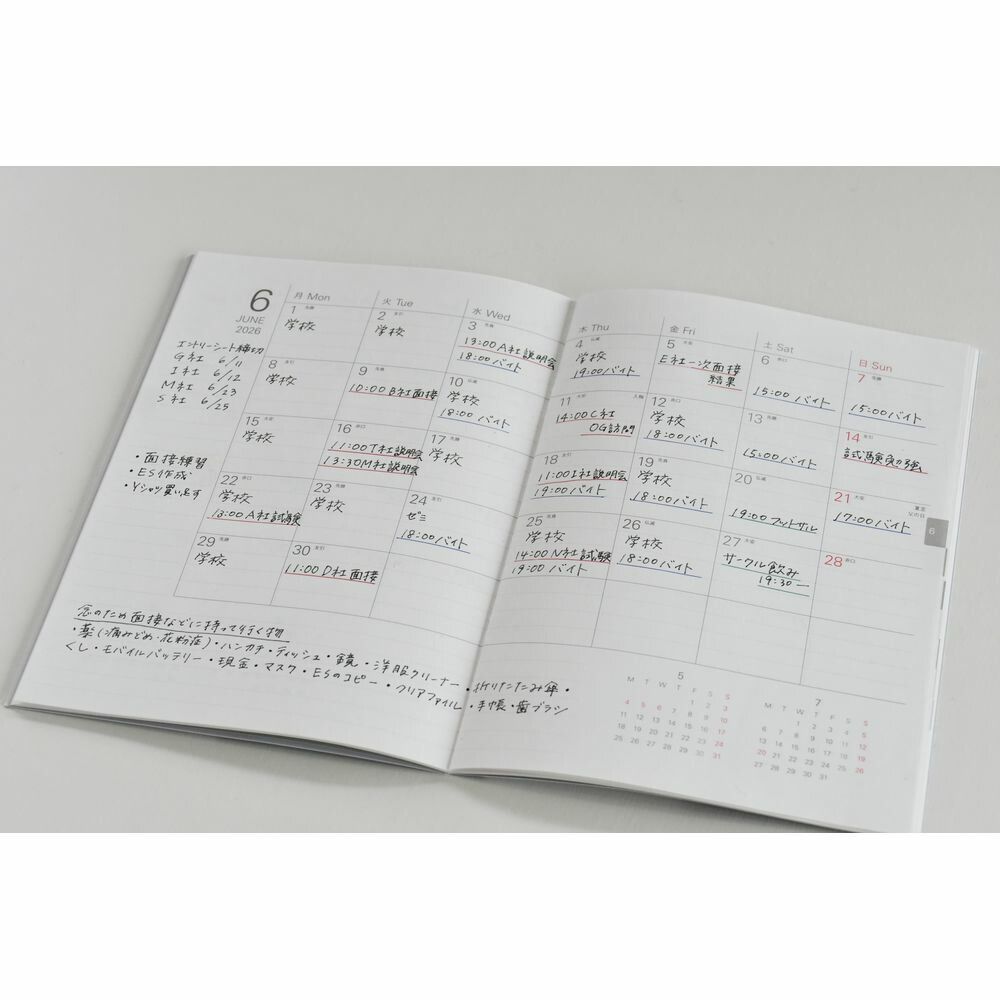 6
JUNE
2026
エントリーシート締切
G社 6/11
I社 6/12
M社 6/23
S社 6/25
・面接練習
・ES作成
・Yシャツ買い足す
月 Mon
火 Tue
水 Wed
木 Thu
金 Fri
土 Sat
日 Sun
1
学校
2
学校
3
13:00 A社説明会
18:00 バイト
4
学校
19:00 バイト
5
E社一次面接
結果
6
15:00 バイト
7
15:00 バイト
8
学校
9
10:00 B社面接
10
学校
18:00 バイト
11
14:00 C社
OG訪問
12
学校
18:00 バイト
13
15:00 バイト
14
試験勉強
15
学校
16
11:00 T社説明会
13:30 M社説明会
17
学校
18
11:00 I社説明会
19:00 バイト
19
学校
18:00 バイト
20
19:00 フットサル
21
父の日
17:00 バイト
22
学校
13:00 A社試験
23
学校
24
ゼミ
18:00 バイト
25
学校
14:00 N社試験
19:00 バイト
26
学校
18:00 バイト
27
サークル飲み
19:30ー
28
29
学校
30
11:00 D社面接
6
念のため面接などに持って行く物
・薬(痛みどめ・花粉症)・ハンカチ・ティッシュ・鏡・洋服クリーナー・折りたたみ傘・
くし・モバイルバッテリー・現金・マスク・ESのコピー・クリアファイル・手帳・歯ブラシ
5
M T W T F S S
1 2 3
4 5 6 7 8 9 10
11 12 13 14 15 16 17
18 19 20 21 22 23 24
25 26 27 28 29 30 31
7
M T W T F S S
1 2 3 4 5
6 7 8 9 10 11 12
13 14 15 16 17 18 19
20 21 22 23 24 25 26
27 28 29 30 31